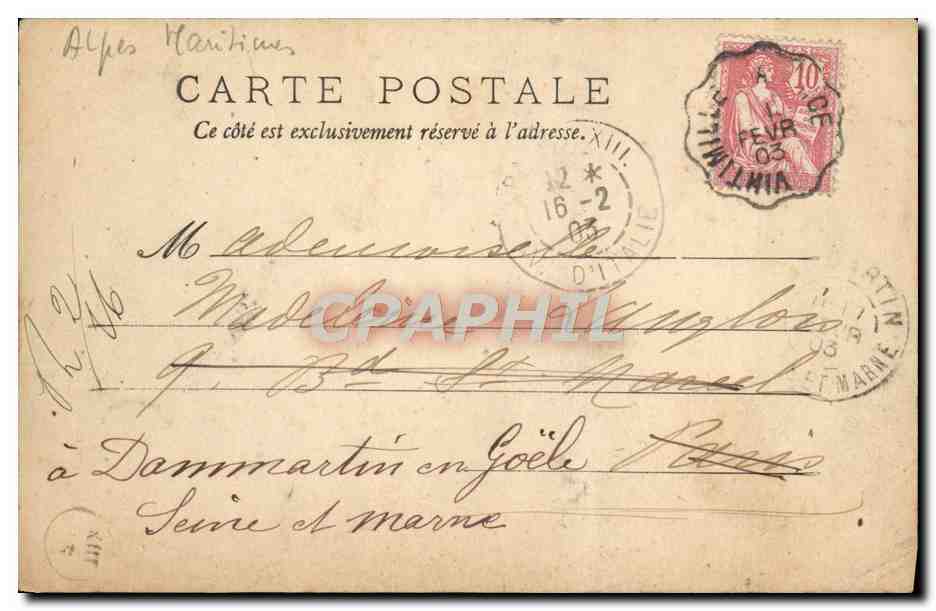 Alpes Maritimes
CARTE POSTALE
Ce côté est exclusivement réservé à l'adresse.
10
VINTIMILLE A NICE
FEVR
03
XIII.
12 *
16 -2
03
D'ITALIE
Mademoiselle
Madeleine Langlois
CPAPHIL
9, Bd St Marcel
Paris
à Dammartin en Goële
Seine et Marne
RTIN
03
ET MARNE
XIII